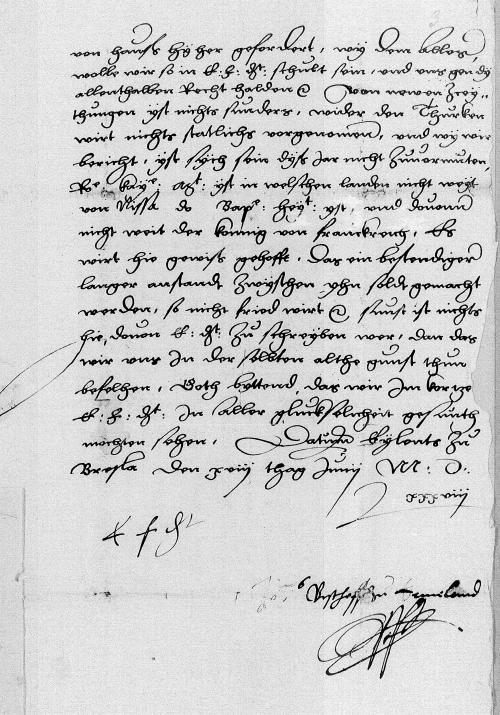 von hauss hyher gefordert, wy dem allem,
wolle wir so in E. F. Dt. schult sein, und uns gen dy
allenthalben Recht halden etc. Von newen Zcey-
thungen yst nichts sunders, wider den Thurken
wirt nichts statlichs vorgenomen, und wy wir
bericht, yst sych sein dyss Jar nicht Zuvormuten,
Ro. Kay. Mt. yst in welschen landen nicht weyt
von Nissa do Bap. Heyt. yst, und dovonn
nicht weit der konnig von franckreich, Es
wirt hie gewiss gehofft, das ein bestendiger
langer anstandt Zwyschen yhn soldt gemacht
werden, so nicht fried wirt etc. sunst ist nichts
hie, dovon E. Dt. Zu schreyben wer, dan das
wir uns In der selbten althe gunst thun
befelhen, Goth byttend, das wir Im kortze
E. F. Dt. In aller gluckselicheit gesunth
mochten sehen, Datum Eylents Zu
Bresla den xviij thag Junij M. D.
xxxviij
E F Dt
Bischoff zu Ermeland